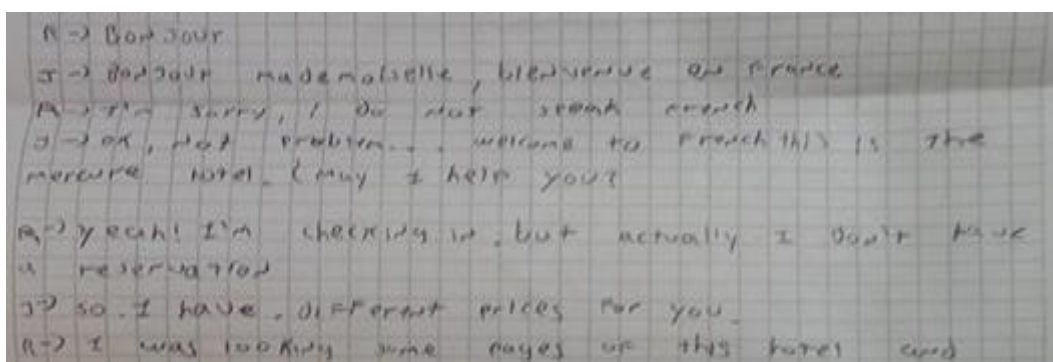 A → Bonjour
J → Bonjour mademoiselle, bienvenue en France
A → I'm sorry, I do not speak french
J → OK, not problem... welcome to French this is the
mercure hotel. (may I help you?
A → yeah! I'm checking in, but actually I don't have
a reservation
J → so. I have. different prices for you.
A → I was looking some pages of this hotel and